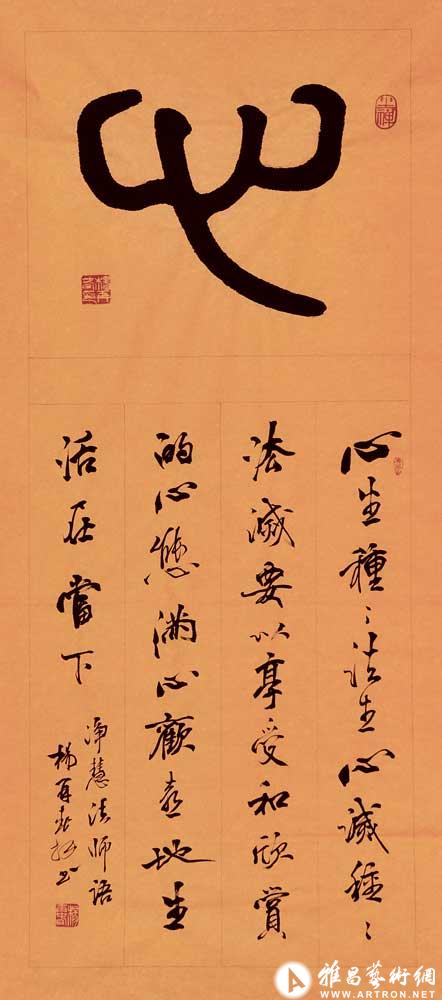 心
心生種〻法生心滅種〻
法滅要以享受和欣賞
的心態滿心歡喜地生
活在當下
淨慧法師語
楊再春抄書
雅昌藝術網
WWW.ARTRON.NET